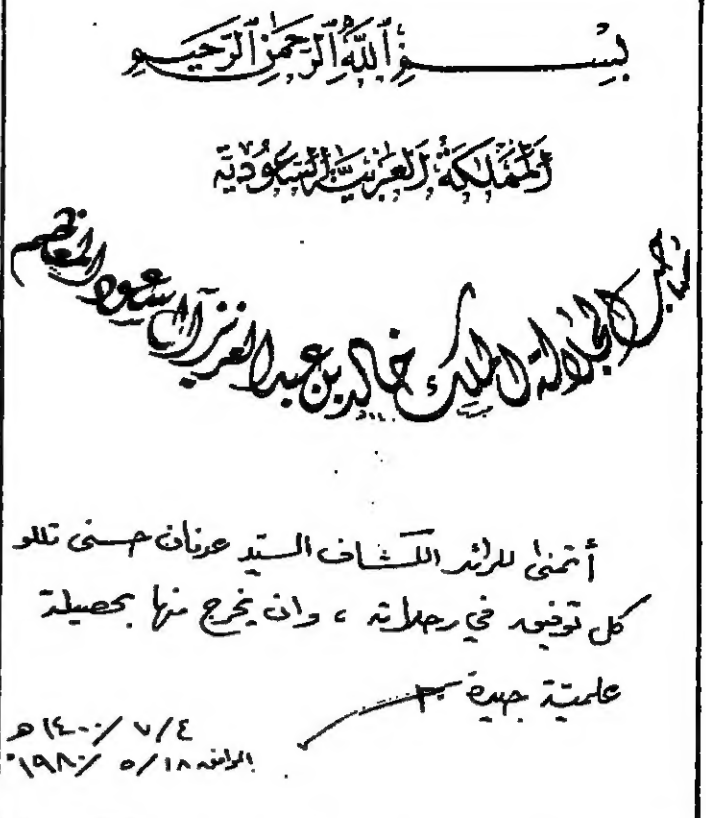 بِسْمِ ٱللَّهِ ٱلرَّحْمَٰنِ ٱلرَّحِيمِ
المملكة العربية السعودية
صاحب الجلالة الملك خالد بن عبدالعزيز آل سعود المعظم
أتمنى للرائد الكشاف السيد عدنان حسني تللو
كل توفيق في رحلاته ، وان يخرج منها بحصيلة
علمية جيدة
٤/٧/١٤٠٠ هـ
الموافق ١٨/٥/١٩٨٠